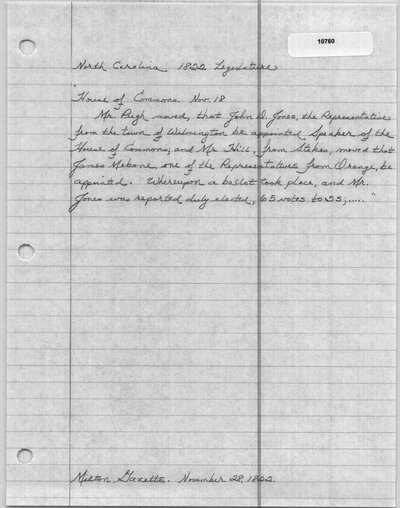 10760
North Carolina 1822 Legislature
"
House of Commons. Nov. 18
Mr. Pugh moved, that John D. Jones, the Representative
from the town of Wilmington be appointed Speaker of the
House of Commons; and Mr Hill, from Stokes, moved that
James Mebane, one of the Representatives from Orange, be
appointed. Whereupon a ballot took place, and Mr.
Jones was reported duly elected, 65 votes to 55;....."
Milton Gazette. November 28, 1822.